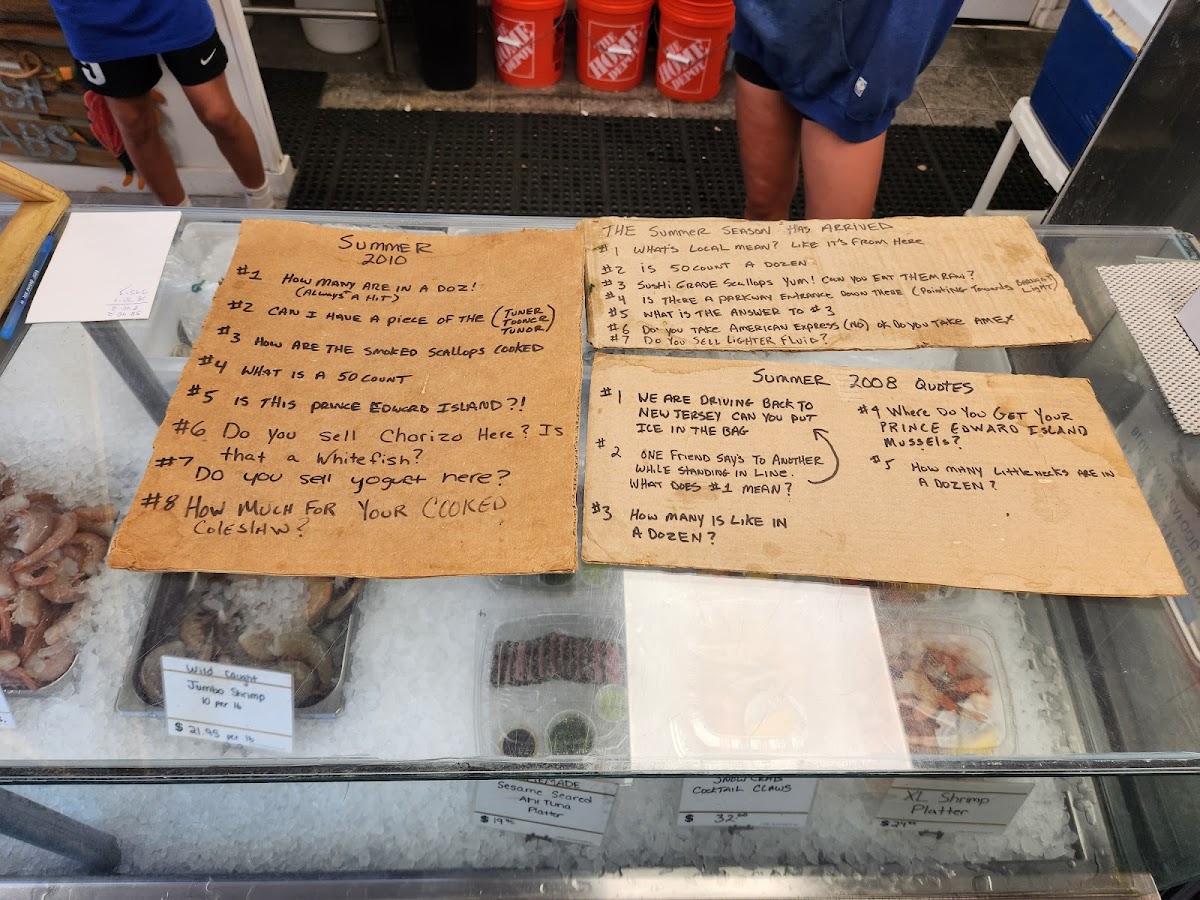 THE HOME DEPOT
THE HOME DEPOT
THE HOME DEPOT
SUMMER
2010
#1 HOW MANY ARE IN A DOZ!
(ALWAYS A HIT)
#2 CAN I HAVE A PIECE OF THE (TUNER
TOONER
TUNOR)
#3 HOW ARE THE SMOKED SCALLOPS COOKED
#4 WHAT IS A 50 COUNT
#5 IS THIS PRINCE EDWARD ISLAND?!
#6 Do you sell Chorizo Here? Is
that a Whitefish?
#7 Do you sell yogurt here?
#8 HOW MUCH FOR YOUR COOKED
COLESLAW?
THE SUMMER SEASON HAS ARRIVED
#1 WHAT'S LOCAL MEAN? LIKE IT'S FROM HERE
#2 IS 50 COUNT A DOZEN
#3 SUSHI GRADE SCALLOPS YUM! CAN YOU EAT THEM RAW?
#4 IS THERE A PARKWAY ENTRANCE DOWN THERE (POINTING TOWARDS BARNEGAT
LIGHT)
#5 WHAT IS THE ANSWER TO #3
#6 DO YOU TAKE AMERICAN EXPRESS (NO) OK DO YOU TAKE AMEX
#7 DO YOU SELL LIGHTER FLUID?
SUMMER 2008 QUOTES
#1 WE ARE DRIVING BACK TO
NEW JERSEY CAN YOU PUT
ICE IN THE BAG
#2 ONE FRIEND SAY'S TO ANOTHER
WHILE STANDING IN LINE.
WHAT DOES #1 MEAN?
#3 HOW MANY IS LIKE IN
A DOZEN?
#4 WHERE DO YOU GET YOUR
PRINCE EDWARD ISLAND
MUSSELS?
#5 HOW MANY LITTLENECKS ARE IN
A DOZEN?
Wild Caught
Jumbo Shrimp
10 per lb
$21.95 per lb
Sesame Seared
Ahi Tuna
Platter
SNOW CRAB
COCKTAIL CLAWS
$ 32
XL Shrimp
Platter